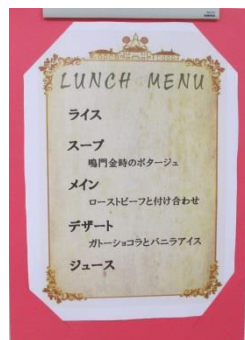 LUNCH MENU
ライス
スープ
鳴門金時のポタージュ
メイン
ローストビーフと付け合わせ
デザート
ガトーショコラとバニラアイス
ジュース